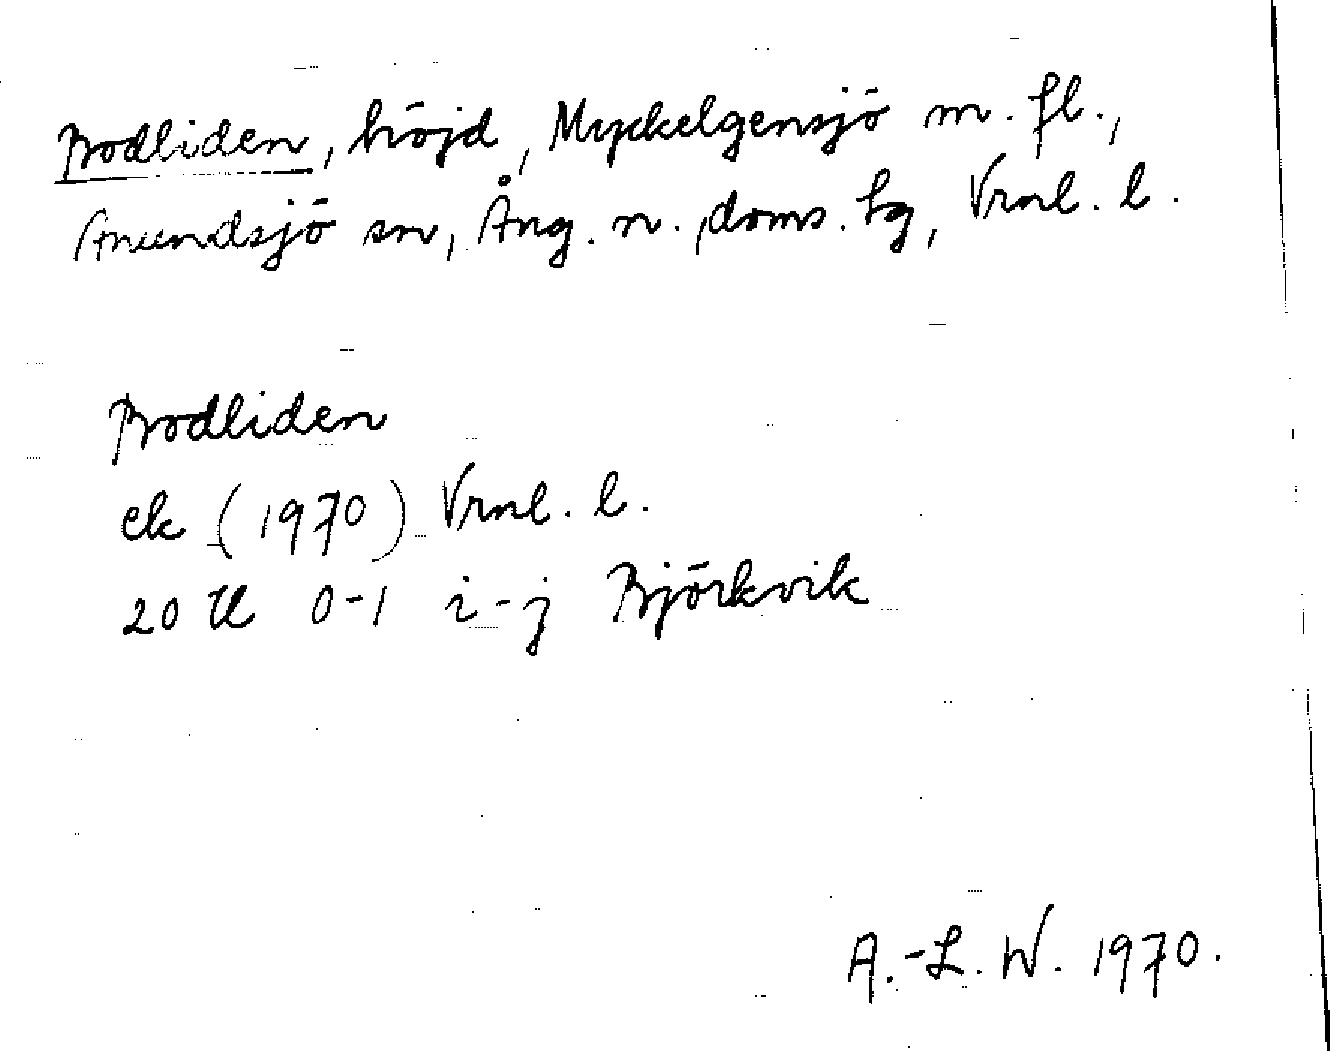 Bodliden, höjd, Myckelgensjö m. fl.,
Anundsjö sn, Ång. n. doms. hg, Vrnl. l.
Bodliden
ek (1970) Vrnl. l.
20 H 0-1 i-j Björkvik
A.-L. W. 1970.